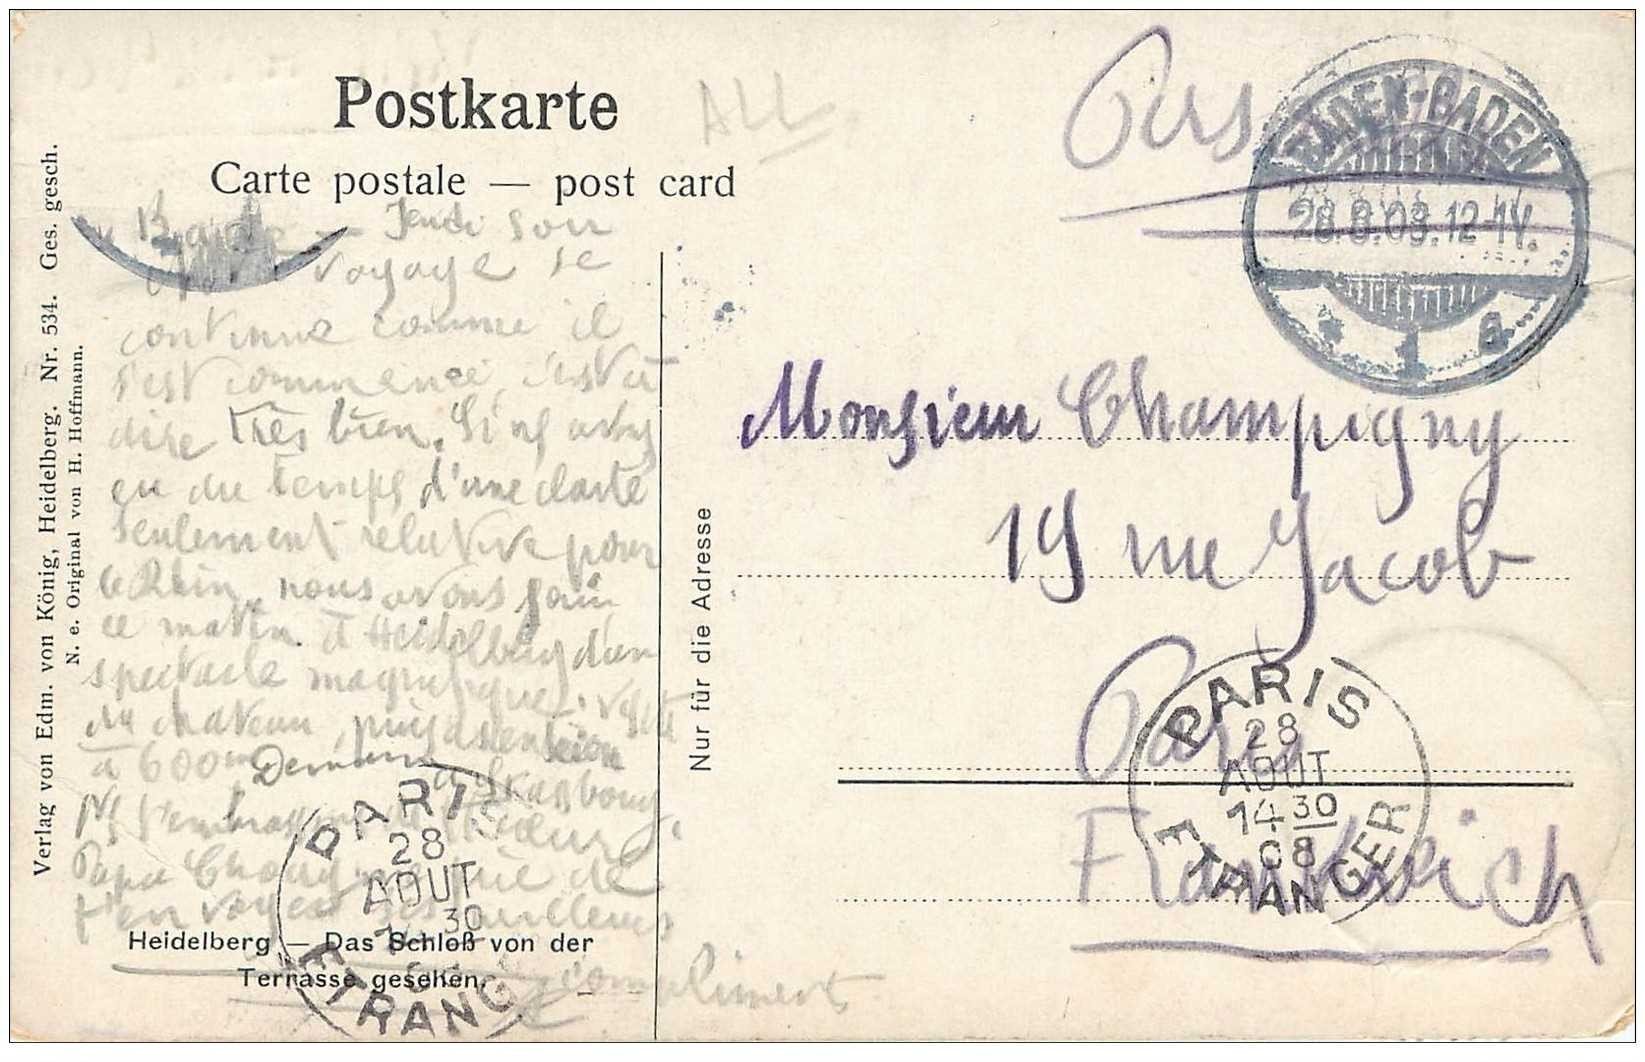 Postkarte
Carte postale — post card
ALL
BADEN-BADEN
28.8.08.12-1V.
* 1 a
Verlag von Edm. von König, Heidelberg. Nr. 534. Ges. gesch.
N. e. Original von H. Hoffmann.
Jeudi soir
voyage se
continue comme il
s'est commencé, c'est à
dire très bien. Si ns avons
eu du temps d'une clarté
seulement relative pour
le Rhin, nous avons joui
ce matin à Heidelberg d'un
spectacle magnifique. visite
du chateau, puis ascension
à 600m Demain
à Strasbourg
Papa
t'envoyer ses meilleurs
compliments
Heidelberg — Das Schloß von der
Terrasse gesehen.
Nur für die Adresse
Monsieur Champigny
19 rue Jacob
Paris
Frankreich
PARIS
28
AOUT
14 30
08
ETRANGER
PARIS
28
AOUT
14 30
ETRANG